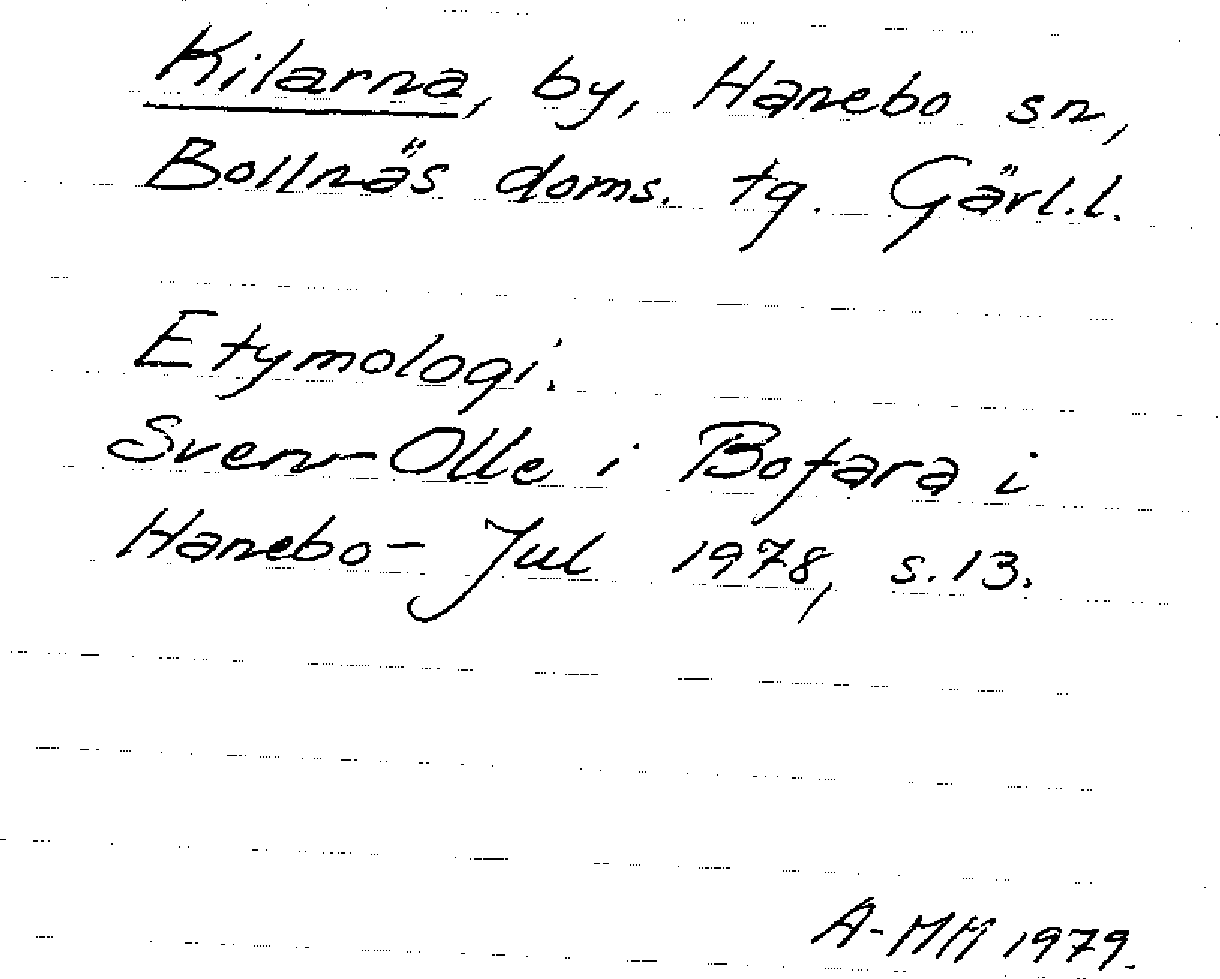 Kilarna, by, Hanebo sn,
Bollnäs doms. tg. Gävl.l.
Etymologi.
Sven-Olle i Bofara i
Hanebo- Jul 1978, s.13.
A-MM 1979.